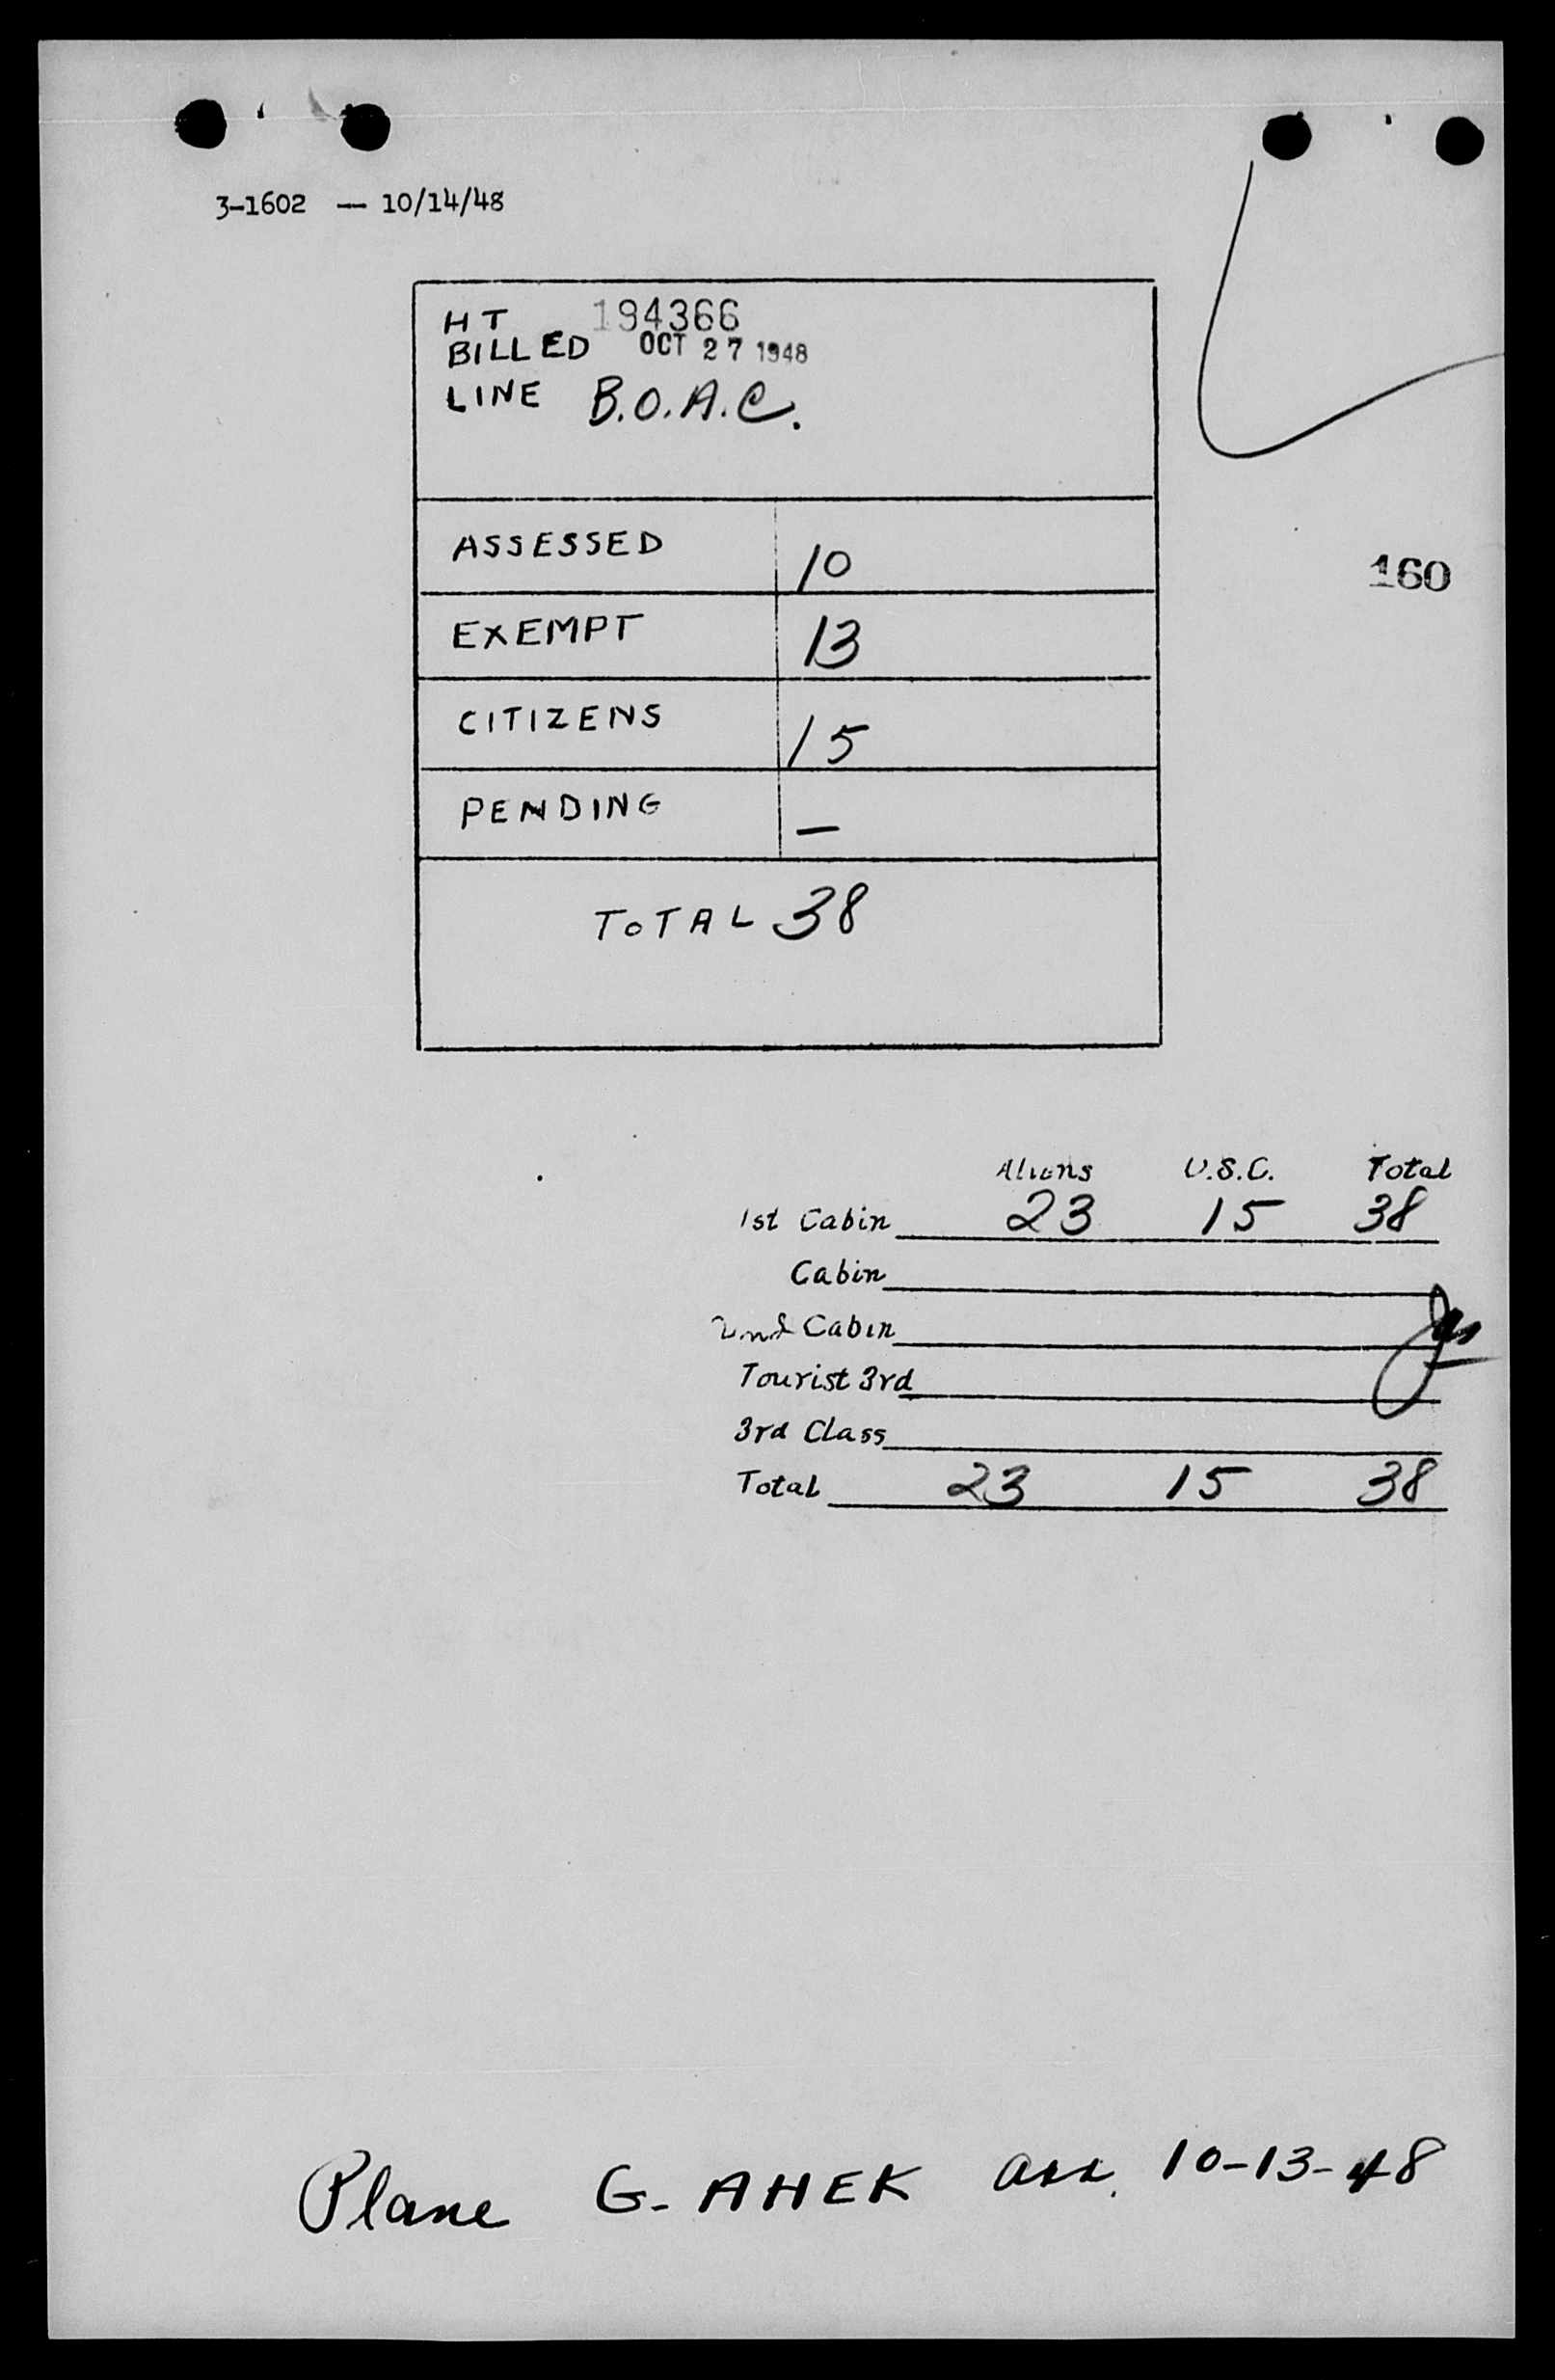 3-1602 — 10/14/48
HT 194366
BILLED OCT 27 1948
LINE B.O.A.C.
ASSESSED 10
160
EXEMPT 13
CITIZENS 15
PENDING —
TOTAL 38
Aliens U.S.C. Total
1st Cabin 23 15 38
Cabin
2nd Cabin
Tourist 3rd
3rd Class
Total 23 15 38
Plane G-AHEK arr. 10-13-48